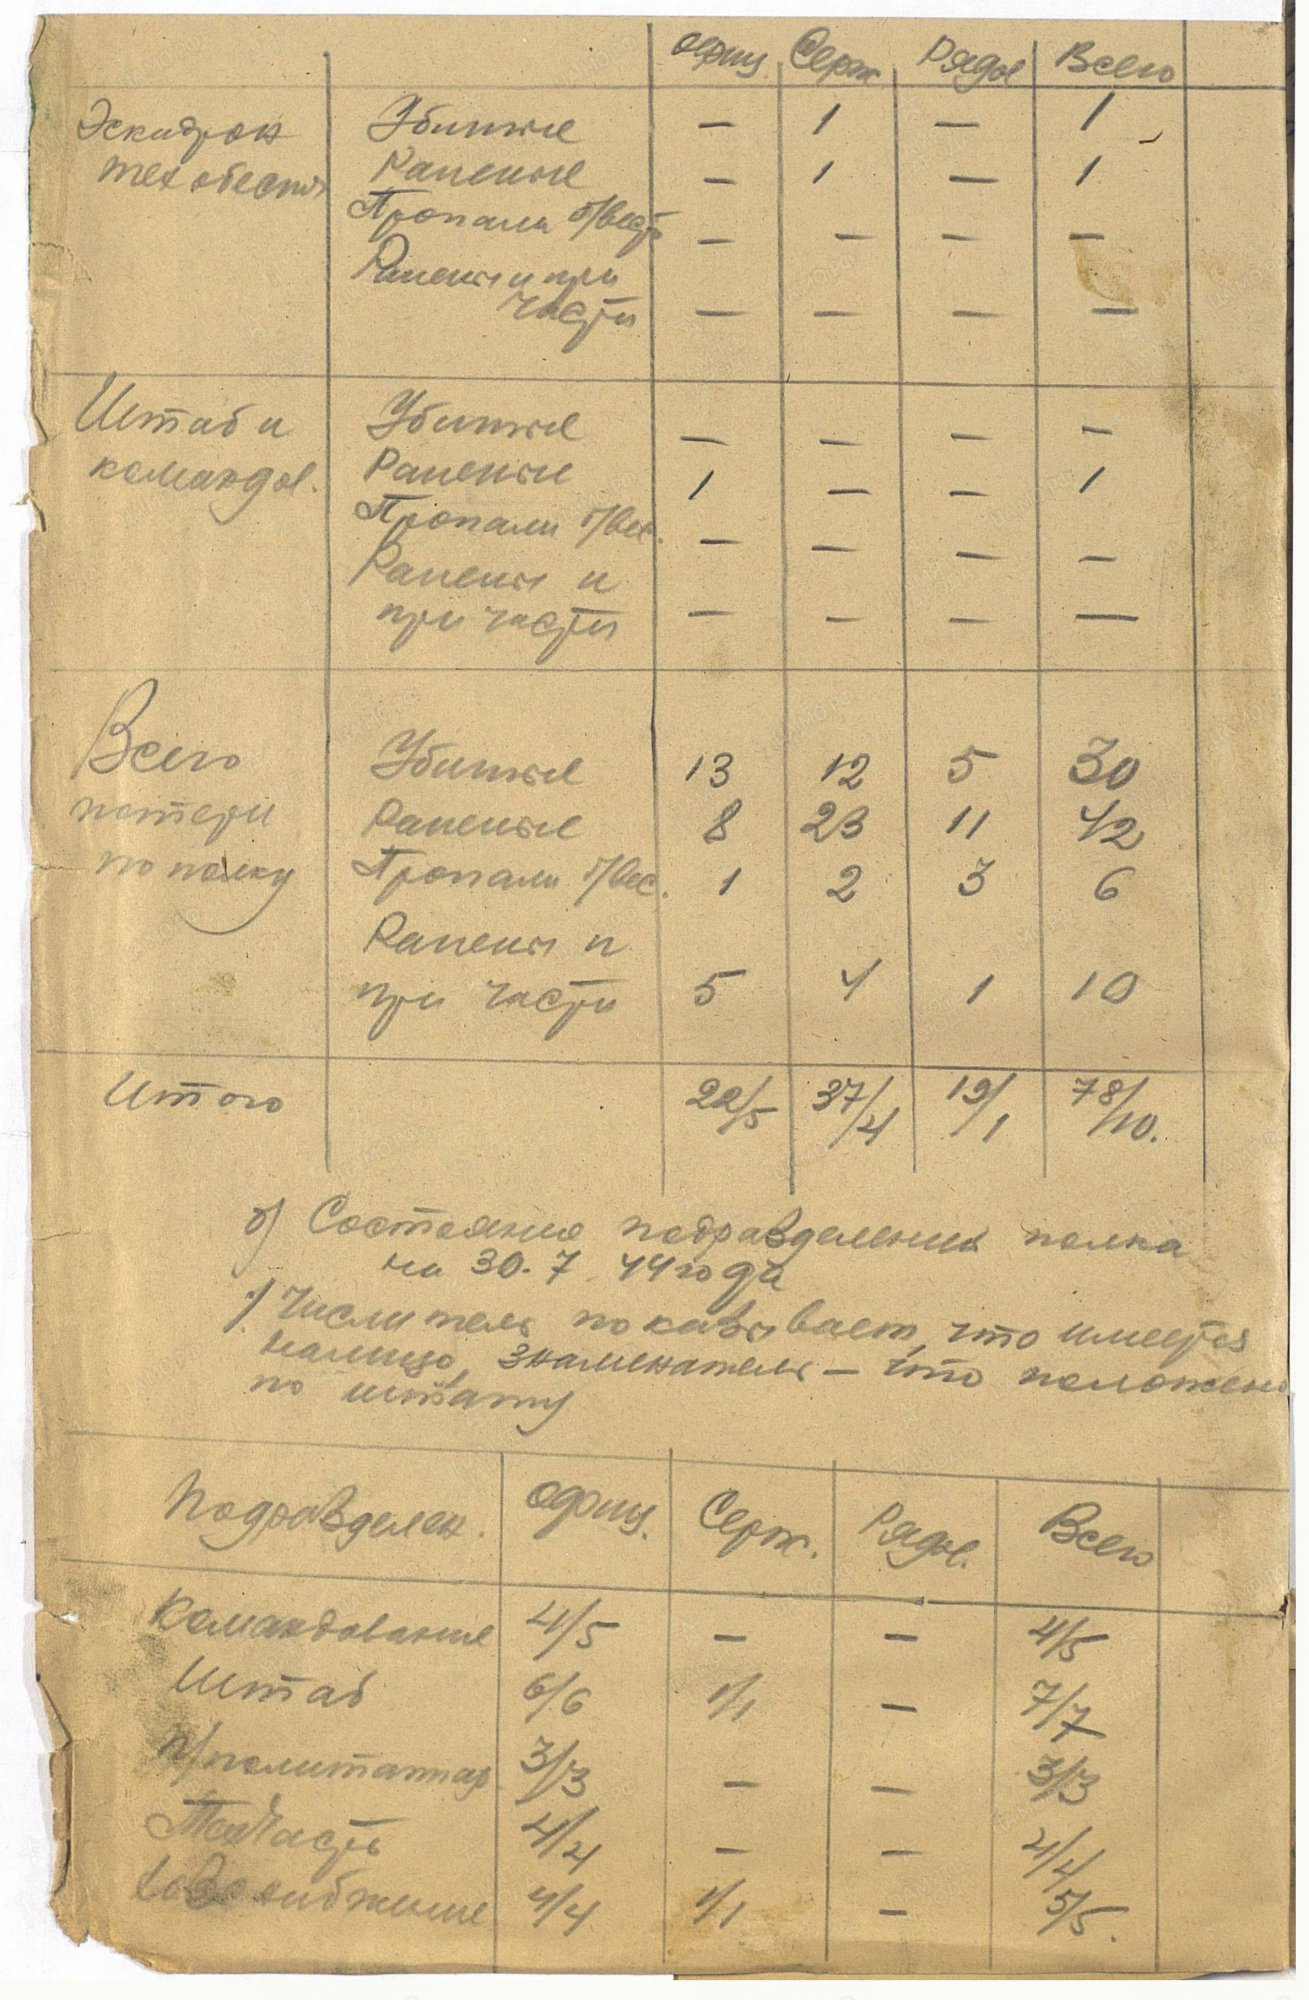 Офиц. Серж. Рядов Всего
Эскадрон Убитые — 1 — 1
тех обеспеч Раненые — 1 — 1
Пропали б/вести — — — —
Ранены и при
части — — — —
Штаб и Убитые — — — —
командов. Раненые 1 — — 1
Пропали б/вес. — — — —
Ранены и
при части — — — —
Всего Убитые 13 12 5 30
потери Раненые 8 23 11 42
по полку Пропали б/вес. 1 2 3 6
Ранены и
при части 5 4 1 10
Итого 22/5 37/4 19/1 78/10.
б) Состояние подразделений полка
на 30.7.44 года
Числитель показывает, что имеется
налицо, знаменатель — что положено
по штату
Подразделен. Офиц. Серж. Рядов. Всего
Командование 4/5 — — 4/5
Штаб 6/6 1/1 — 7/7
П/политаппар 3/3 — — 3/3
Техчасть 4/4 — — 4/4
4/4 1/1 — 5/5.